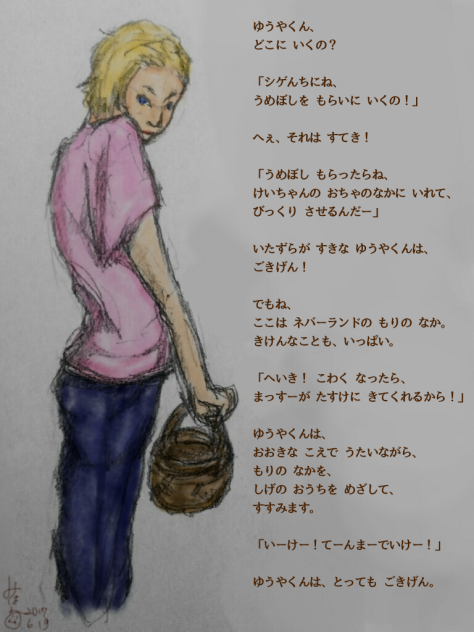 ゆうやくん、
どこに いくの？
「シゲんちにね、
うめぼしを もらいに いくの！」
へぇ、それは すてき！
「うめぼし もらったらね、
けいちゃんの おちゃのなかに いれて、
びっくり させるんだー」
いたずらが すきな ゆうやくんは、
ごきげん！
でもね、
ここは ネバーランドの もりの なか。
きけんなことも、いっぱい。
「へいき！ こわく なったら、
まっすーが たすけに きてくれるから！」
ゆうやくんは、
おおきな こえで うたいながら、
もりの なかを、
しげの おうちを めざして、
すすみます。
「いーけー！てーんまーでいけー！」
ゆうやくんは、とっても ごきげん。
2017
6.19